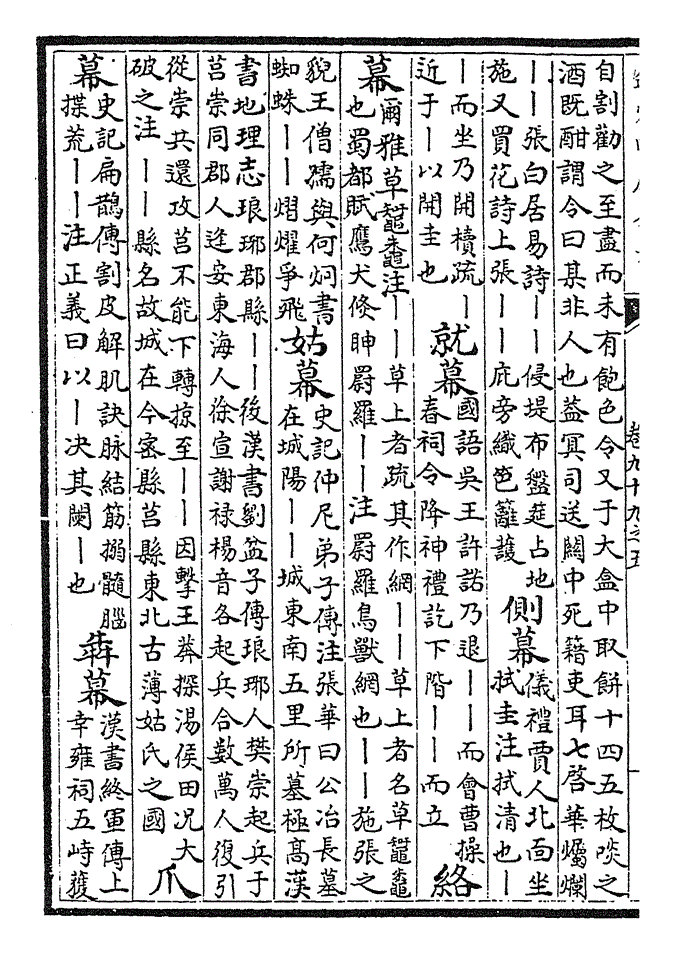 卷九十九之五
自割勸之至盡而未有飽色令又于大盒中取餅十四五枚啖之
酒既酣謂令曰某非人也葢冥司送關中死籍吏耳七啓華燭爛
——張白居易詩——侵堤布盤筵占地
施又買花詩上張——庇旁織笆籬護
側幕
儀禮賈人北面坐
拭圭注拭清也—
—而坐乃開櫝疏—
近于—以開圭也
就幕
國語吳王許諾乃退——而會曹操
春祠令降神禮訖下階——而立
絡
幕
爾雅草鼅鼄注——草上者疏其作網——草上者名草鼅鼄
也蜀都賦鷹犬倐眒罻羅——注罻羅鳥獸網也——施張之
貌王僧孺與何炯書
蜘蛛——熠燿爭飛
姑幕
史記仲尼弟子傳注張華曰公冶長墓
在城陽——城東南五里所墓極高漢
書地理志琅琊郡縣——後漢書劉盆子傳琅琊人樊崇起兵于
莒崇同郡人逄安東海人徐宣謝祿楊音各起兵合數萬人復引
從崇共還攻莒不能下轉掠至——因擊王莽探湯侯田況大
破之注——縣名故城在今密縣莒縣東北古薄姑氏之國
爪
幕
史記扁鵲傳割皮解肌訣脉結筋搦髓腦
揲荒——注正義曰以—决其闌—也
犇幕
漢書終軍傳上
幸雍祠五畤獲